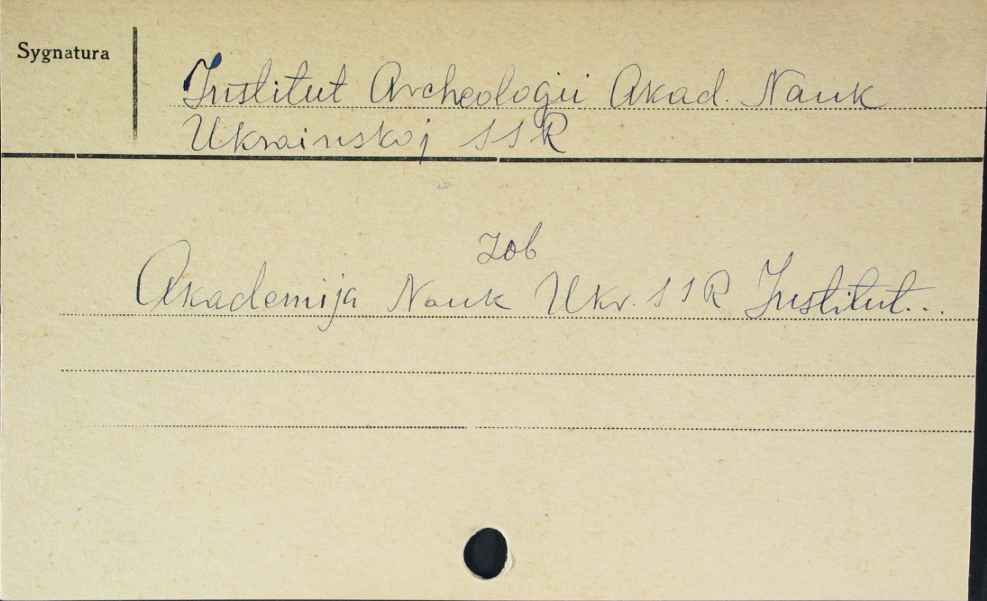 Sygnatura
Institut Archeologii Akad. Nauk
Ukrainskoj SSR
zob
Akademija Nauk Ukr. SSR Institut...